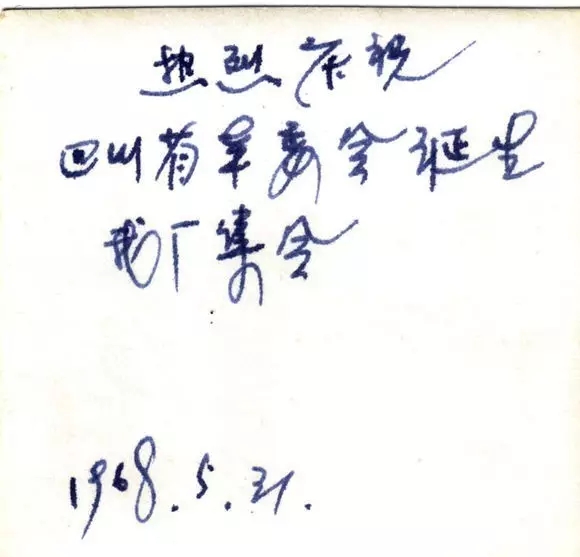 热烈庆祝
四川省革委会诞生
我厂集会
1968.5.31.